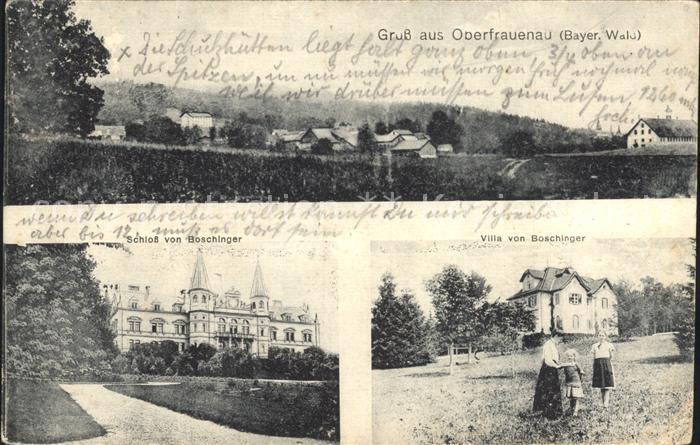 Gruß aus Oberfrauenau (Bayer. Wald)
x Die Schutzhütten liegt halt ganz oben 3/4 oben an
der Spitzen, un nu müssen wir morgen früh nochmal
weil wir drüber müssen zum Lusen, 1260 m
hoch
wenn Du schreiben willst kannst Du mir schreibe
aber bis 12. muß es dort sein
Schloß von Boschinger
Villa von Boschinger